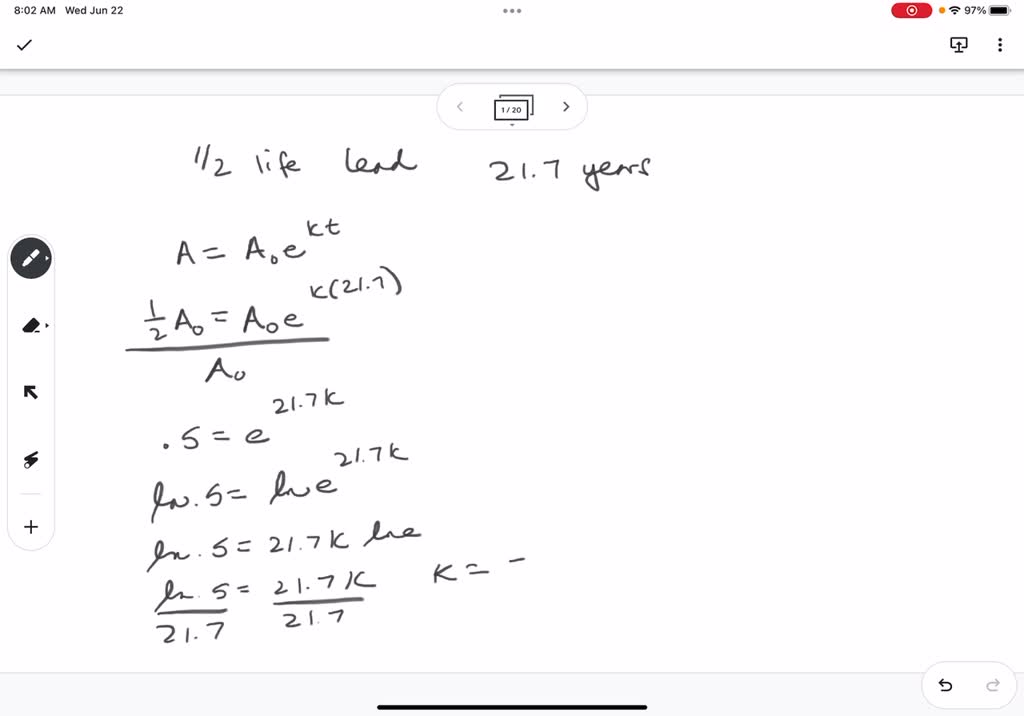 8:02 AM Wed Jun 22
97%
1 / 20
1/2 life lead 21.7 years
A = A₀e^kt
1/2 A₀ = A₀e^k(21.7)
A₀
.5 = e^21.7K
ln .5 = ln e^21.7K
ln .5 = 21.7K ln e
ln .5 = 21.7K K = -
21.7 21.7